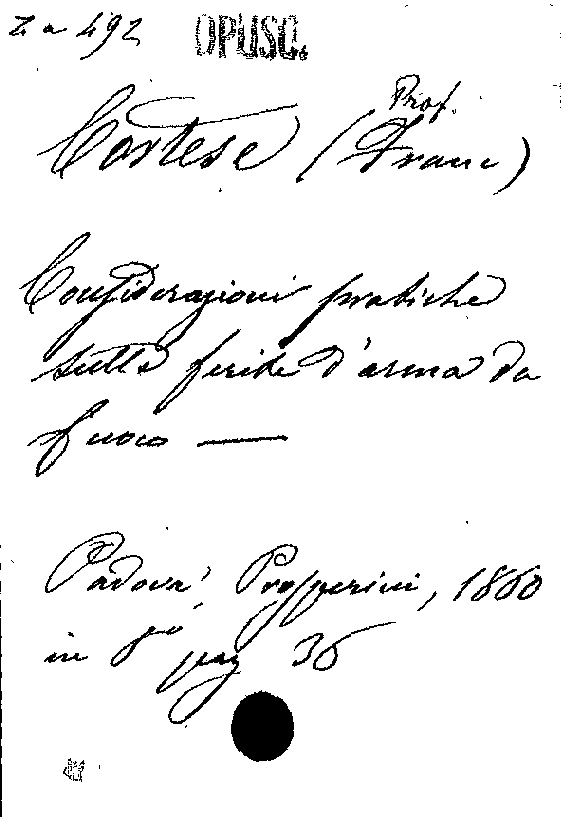 Z a 492 OPUSC.
Cortese (Prof. Franc)
Considerazioni pratiche
sulle ferite d'arma da
fuoco —
Padova, Prosperini, 1860
in 8° pag 36